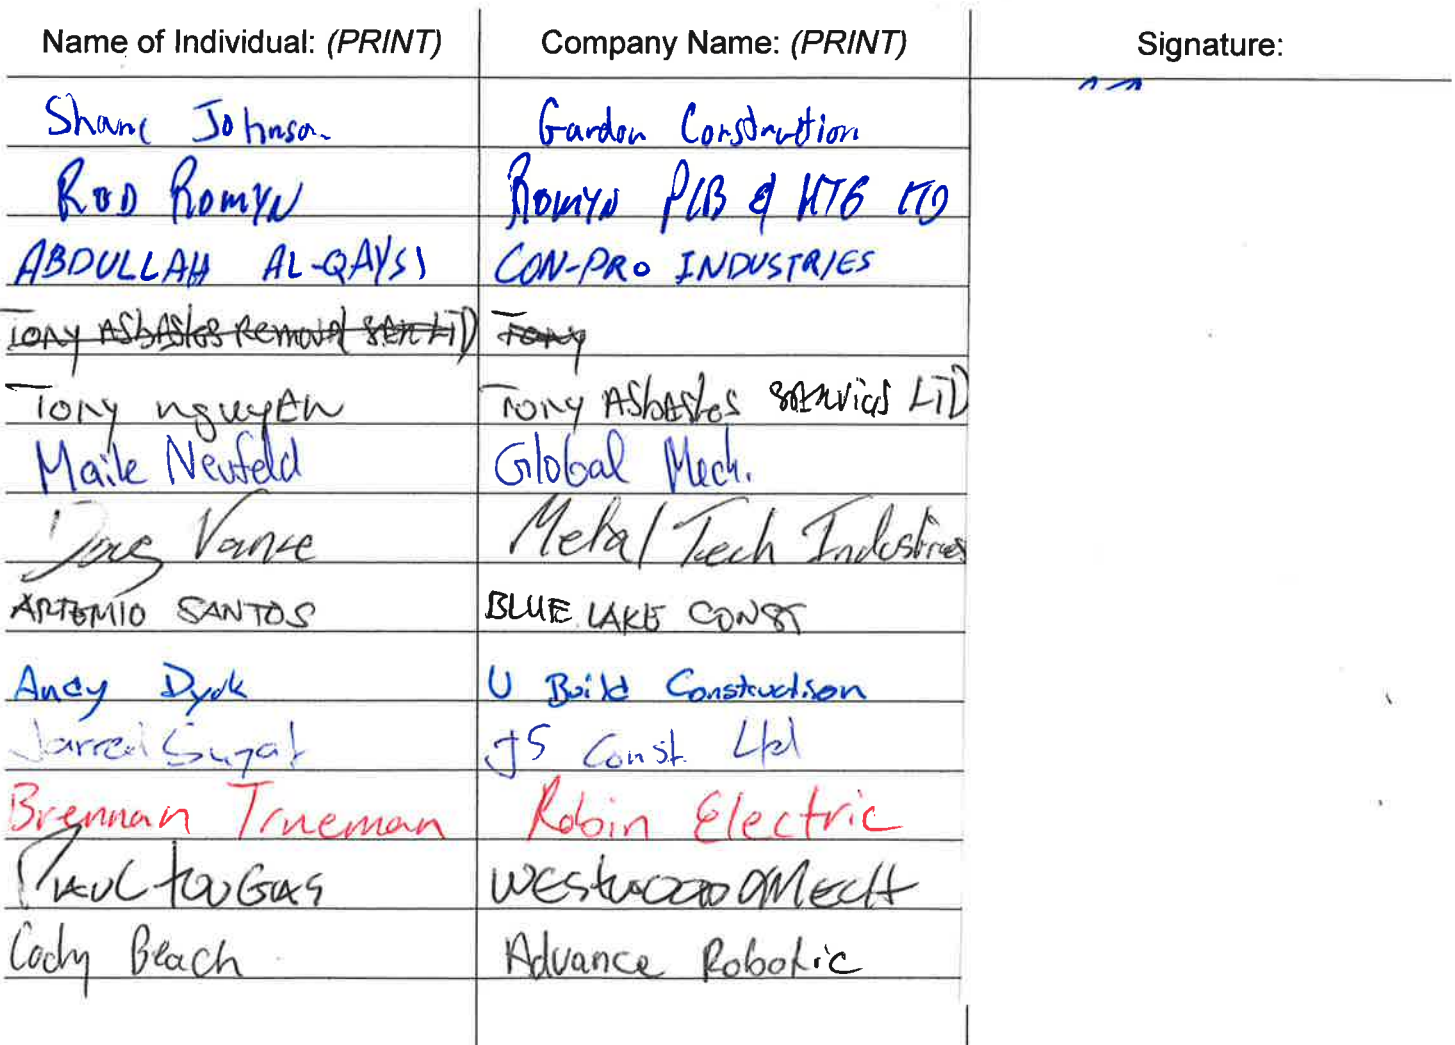 Name of Individual: (PRINT) Company Name: (PRINT) Signature:
Shane Johnson Gardon Construction
ROD ROMYN ROMYN PLB & HTG LTD
ABDULLAH AL-QAYSI CON-PRO INDUSTRIES
Tony ASbAStos Removal SER LTD Tony
Tony nguyEn Tony ASbAStos SERvicS LTD
Maik Neufeld Global Mech.
Doug Vance Metal Tech Industries
ARTEMIO SANTOS BLUE LAKE CONST
Andy Dyck U Build Construction
Jarred JS Const. Ltd
Brennan Trueman Robin Electric
PAUL TOUGAS WESTWOOD MECH
Cody Beach Advance Robotic